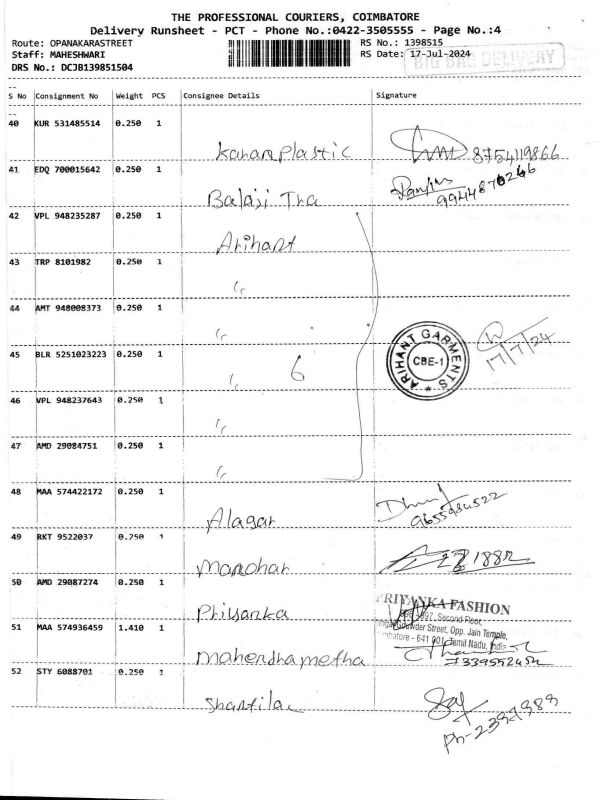 THE PROFESSIONAL COURIERS, COIMBATORE
Delivery Runsheet - PCT - Phone No.:0422-3505555 - Page No.:4
Route: OPANAKARASTREET RS No.: 1398515
Staff: MAHESHWARI RS Date: 17-Jul-2024
BIG BAG DELIVERY
DRS No.: DCJB139851504
S No Consignment No Weight PCS Consignee Details Signature
40 KUR 531485514 0.250 1
Kanan Plastic 8754119866
41 EDQ 700015642 0.250 1
Balaji Tra
42 VPL 948235287 0.250 1
Arihant
43 TRP 8101982 0.250 1
"
44 AMT 948008373 0.250 1
"
45 BLR 5251023223 0.250 1
" 6
ARIHANT GARMENTS
CBE-1
17/7/24
46 VPL 948237643 0.250 1
"
47 AMD 29084751 0.250 1
"
48 MAA 574422172 0.250 1
Alagar
49 RKT 9522037 0.250 1
Manohar
50 AMD 29087274 0.250 1
Priyanka
PRIYANKA FASHION
Second Floor,
Street, Opp. Jain Temple,
- 641 001, Tamil Nadu, India
51 MAA 574936459 1.410 1
Mahendra metha
52 STY 6088701 0.250 1
Shantilal